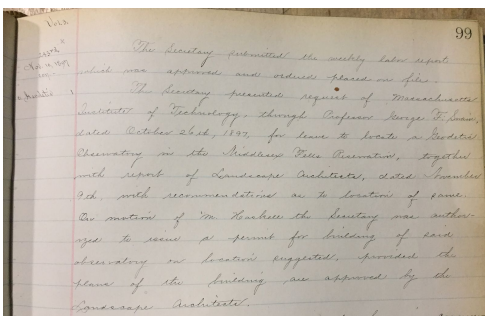 99
Vol. 3.
1897
The Secretary submitted the weekly labor report
which was approved and ordered placed on file.
The Secretary presented request of Massachusetts
Institute of Technology, through Professor George F. Swain,
dated October 26th, 1897, for leave to locate a Geodetic
Observatory in the Middlesex Fells Reservation, together
with report of Landscape Architects, dated November
9th, with recommendations as to location of same.
On motion of Mr. Haskell the Secretary was author-
ized to issue a permit for building of said
observatory on location suggested, provided the
plans of the building are approved by the
Landscape Architects.